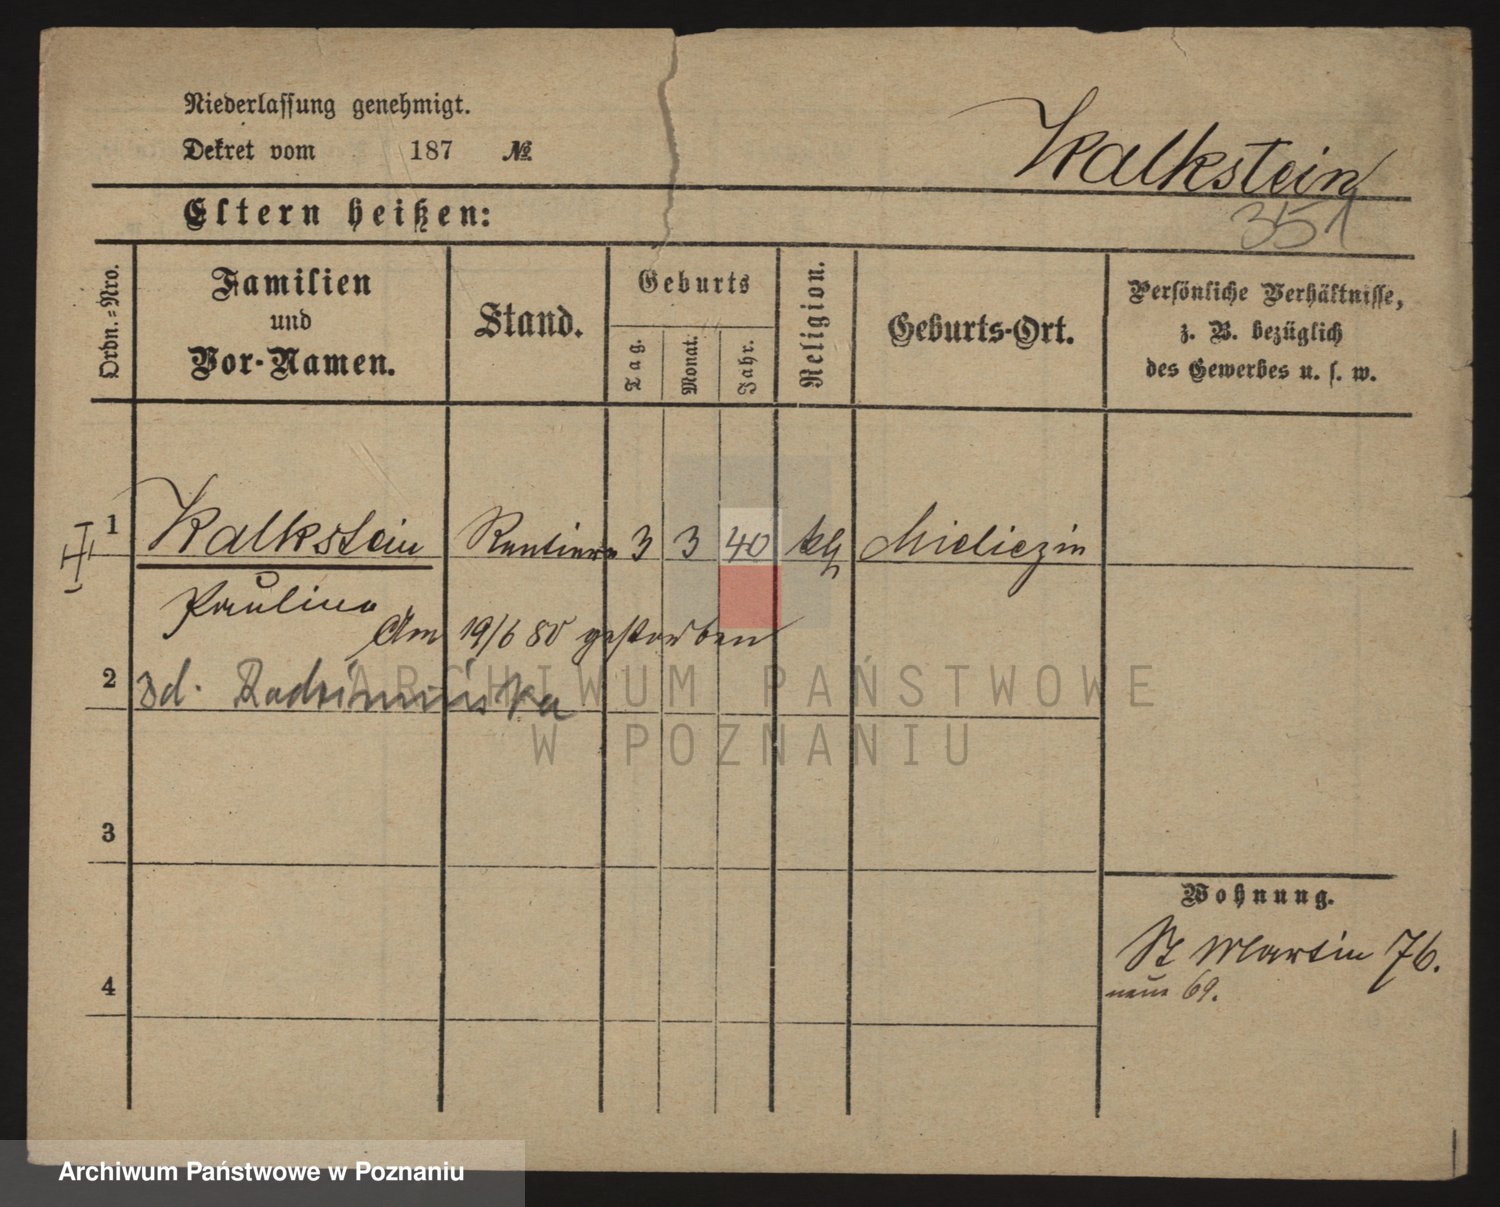 Niederlassung genehmigt.
Dekret vom 187 №
Kalkstein
351
Eltern heißen:
Ordn.-Nro.
Familien und Vor-Namen.
Stand.
Geburts
Tag.
Monat.
Jahr.
Religion.
Geburts-Ort.
Persönliche Verhältnisse,
z. B. bezüglich
des Gewerbes u. s. w.
1 Kalkstein Rentiere 3 3 40 kth
Paulina
Am 19/6 80 gestorben
2
3
4
Wohnung.
St Martin 76.
neue 69.
ARCHIWUM PAŃSTWOWE
W POZNANIU
Archiwum Państwowe w Poznaniu